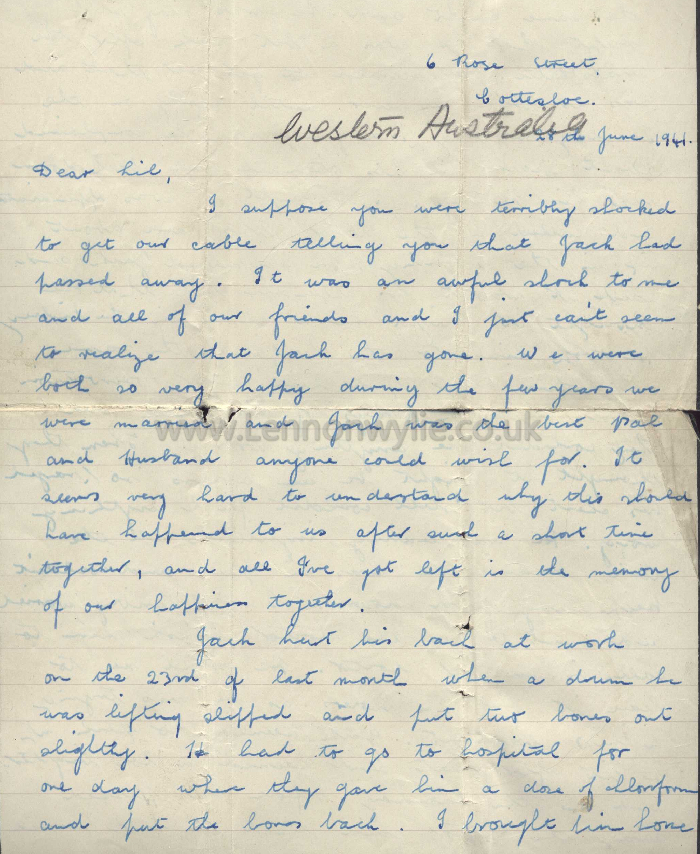 6 Rose Street,
Cottesloe.
Western Australia
28th June 1941.
Dear Lil,
I suppose you were terribly shocked
to get our cable telling you that Jack had
passed away. It was an awful shock to me
and all of our friends and I just can't seem
to realize that Jack has gone. We were
both so very happy during the few years we
were married and Jack was the best Pal
www.Lennonwylie.co.uk
and Husband anyone could wish for. It
seems very hard to understand why this should
have happened to us after such a short time
together, and all I've got left is the memory
of our happiness together.
Jack hurt his back at work
on the 23rd of last month when a drum he
was lifting slipped and put two bones out
slightly. He had to go to hospital for
one day where they gave him a dose of chloroform
and put the bones back. I brought him home